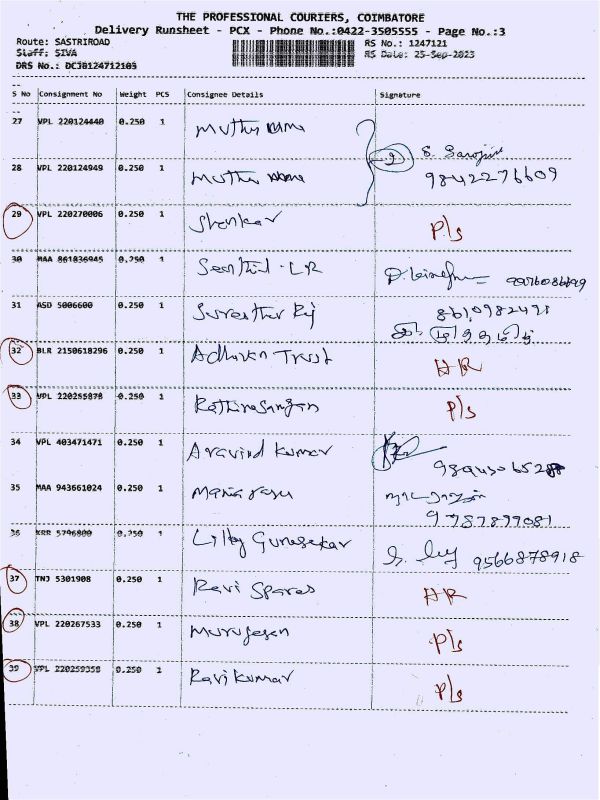 THE PROFESSIONAL COURIERS, COIMBATORE
Delivery Runsheet - PCX - Phone No.:0422-3505555 - Page No.:3
Route: SASTRIROAD RS No.: 1247121
Staff: SIVA RS Date: 25-Sep-2023
DRS No.: DCJ0124712103
S No Consignment No Weight PCS Consignee Details Signature
27 VPL 220124440 0.250 1 Muthu
28 VPL 220124949 0.250 1 Muthu
9842276609
29 VPL 220270006 0.250 1 Shankar P/s
30 MAA 861836945 0.250 1 Senthil . LR
31 ASD 5006600 0.250 1 Suresthur Raj 8610982491
32 BLR 2150618296 0.250 1 Adhavan Trust HR
33 VPL 220265878 0.250 1 P/s
34 VPL 403471471 0.250 1 Aravind Kumar
35 MAA 943661024 0.250 1 Maria rasu
9787897081
36 KRR 5796800 0.250 1 Lilly Gunasekar 9566878918
37 TNJ 5301908 0.250 1 Ravi Spares HR
38 VPL 220267533 0.250 1 Murugesan P/s
39 VPL 220259358 0.250 1 Ravi Kumar P/s